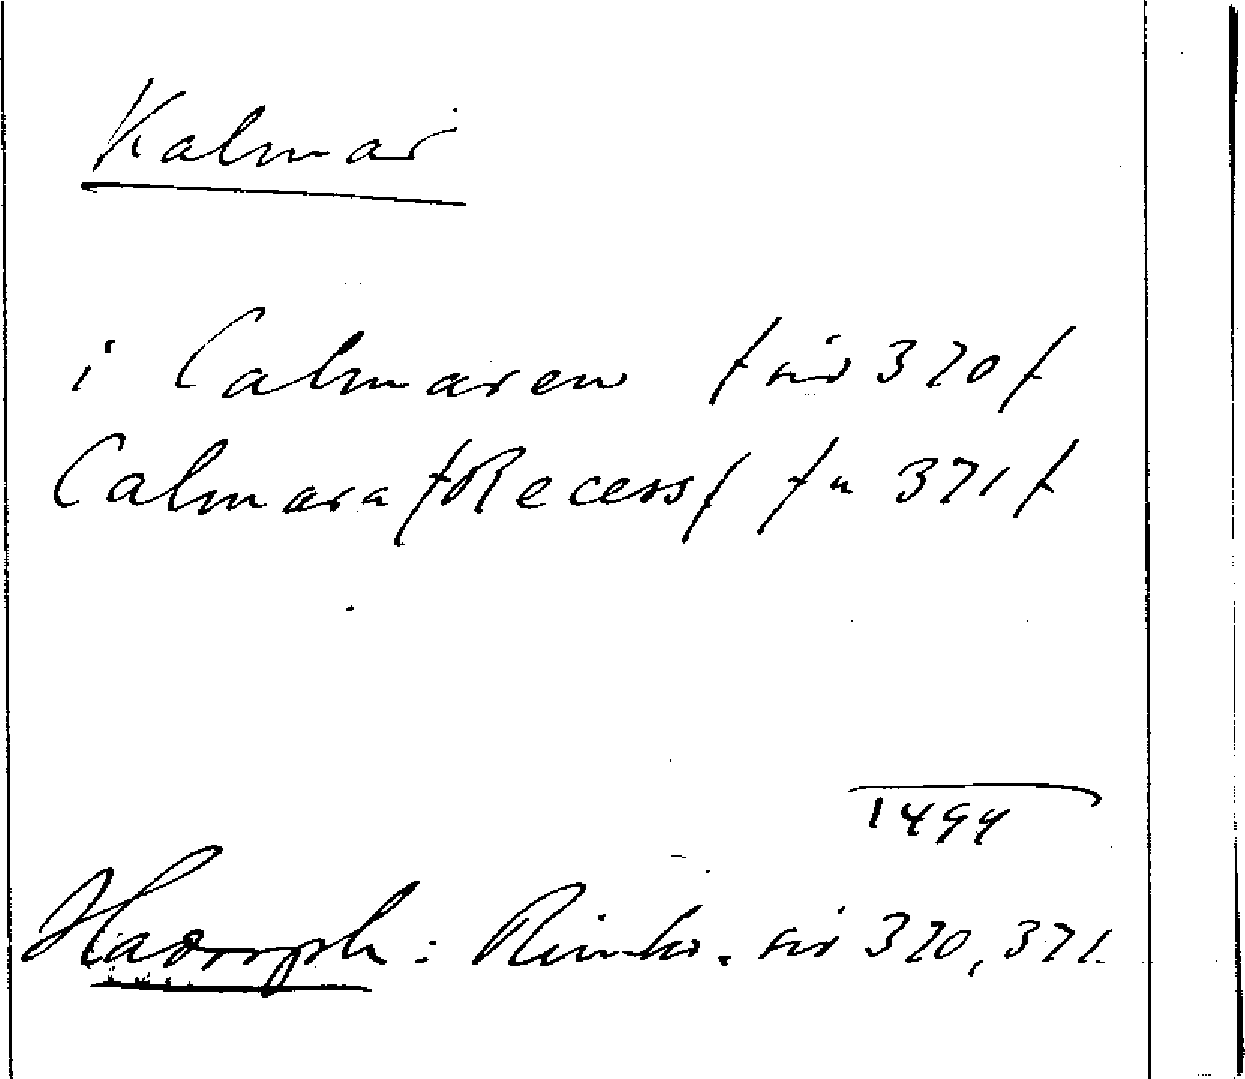 Kalmar
i Calmaren /: sid 370 :/
Calmara /: Recess :/ /: " 371 :/
1494
Hadorph: Rimkr. sid 370, 371.